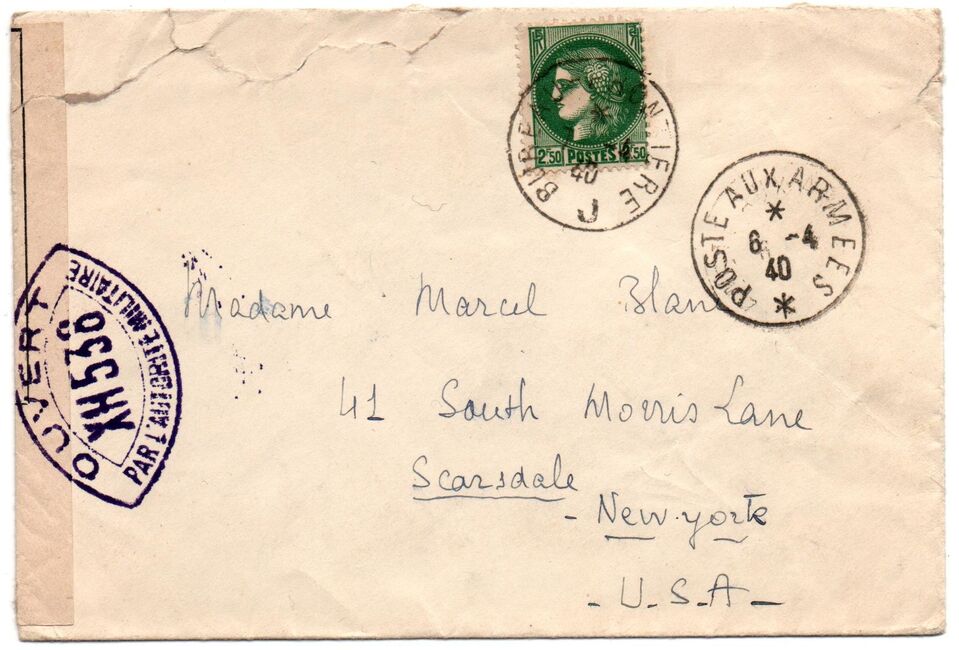 2F50 POSTES 2F50
BUREAU FRONTIERE
40
J
POSTE AUX ARMEES
* 6 -4 40 *
OUVERT
XH536
PAR L'AUTORITÉ MILITAIRE
Madame Marcel
41 South Morris Lane
Scarsdale
- New-York
- U.S.A -